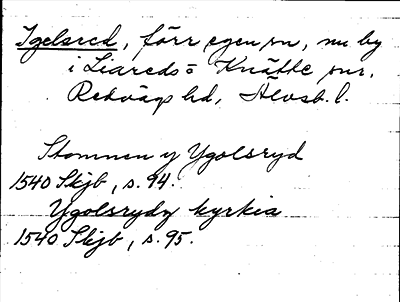 Igelsred, förr egen sn, nu by
i Liareds o Knätte snr,
Redvägs hd, Älvsb. l.
Stommen y Ygolsryd
1540 Skjb, s. 94.
Ygolsrydz kyrkia
1540 Skjb, s. 95.